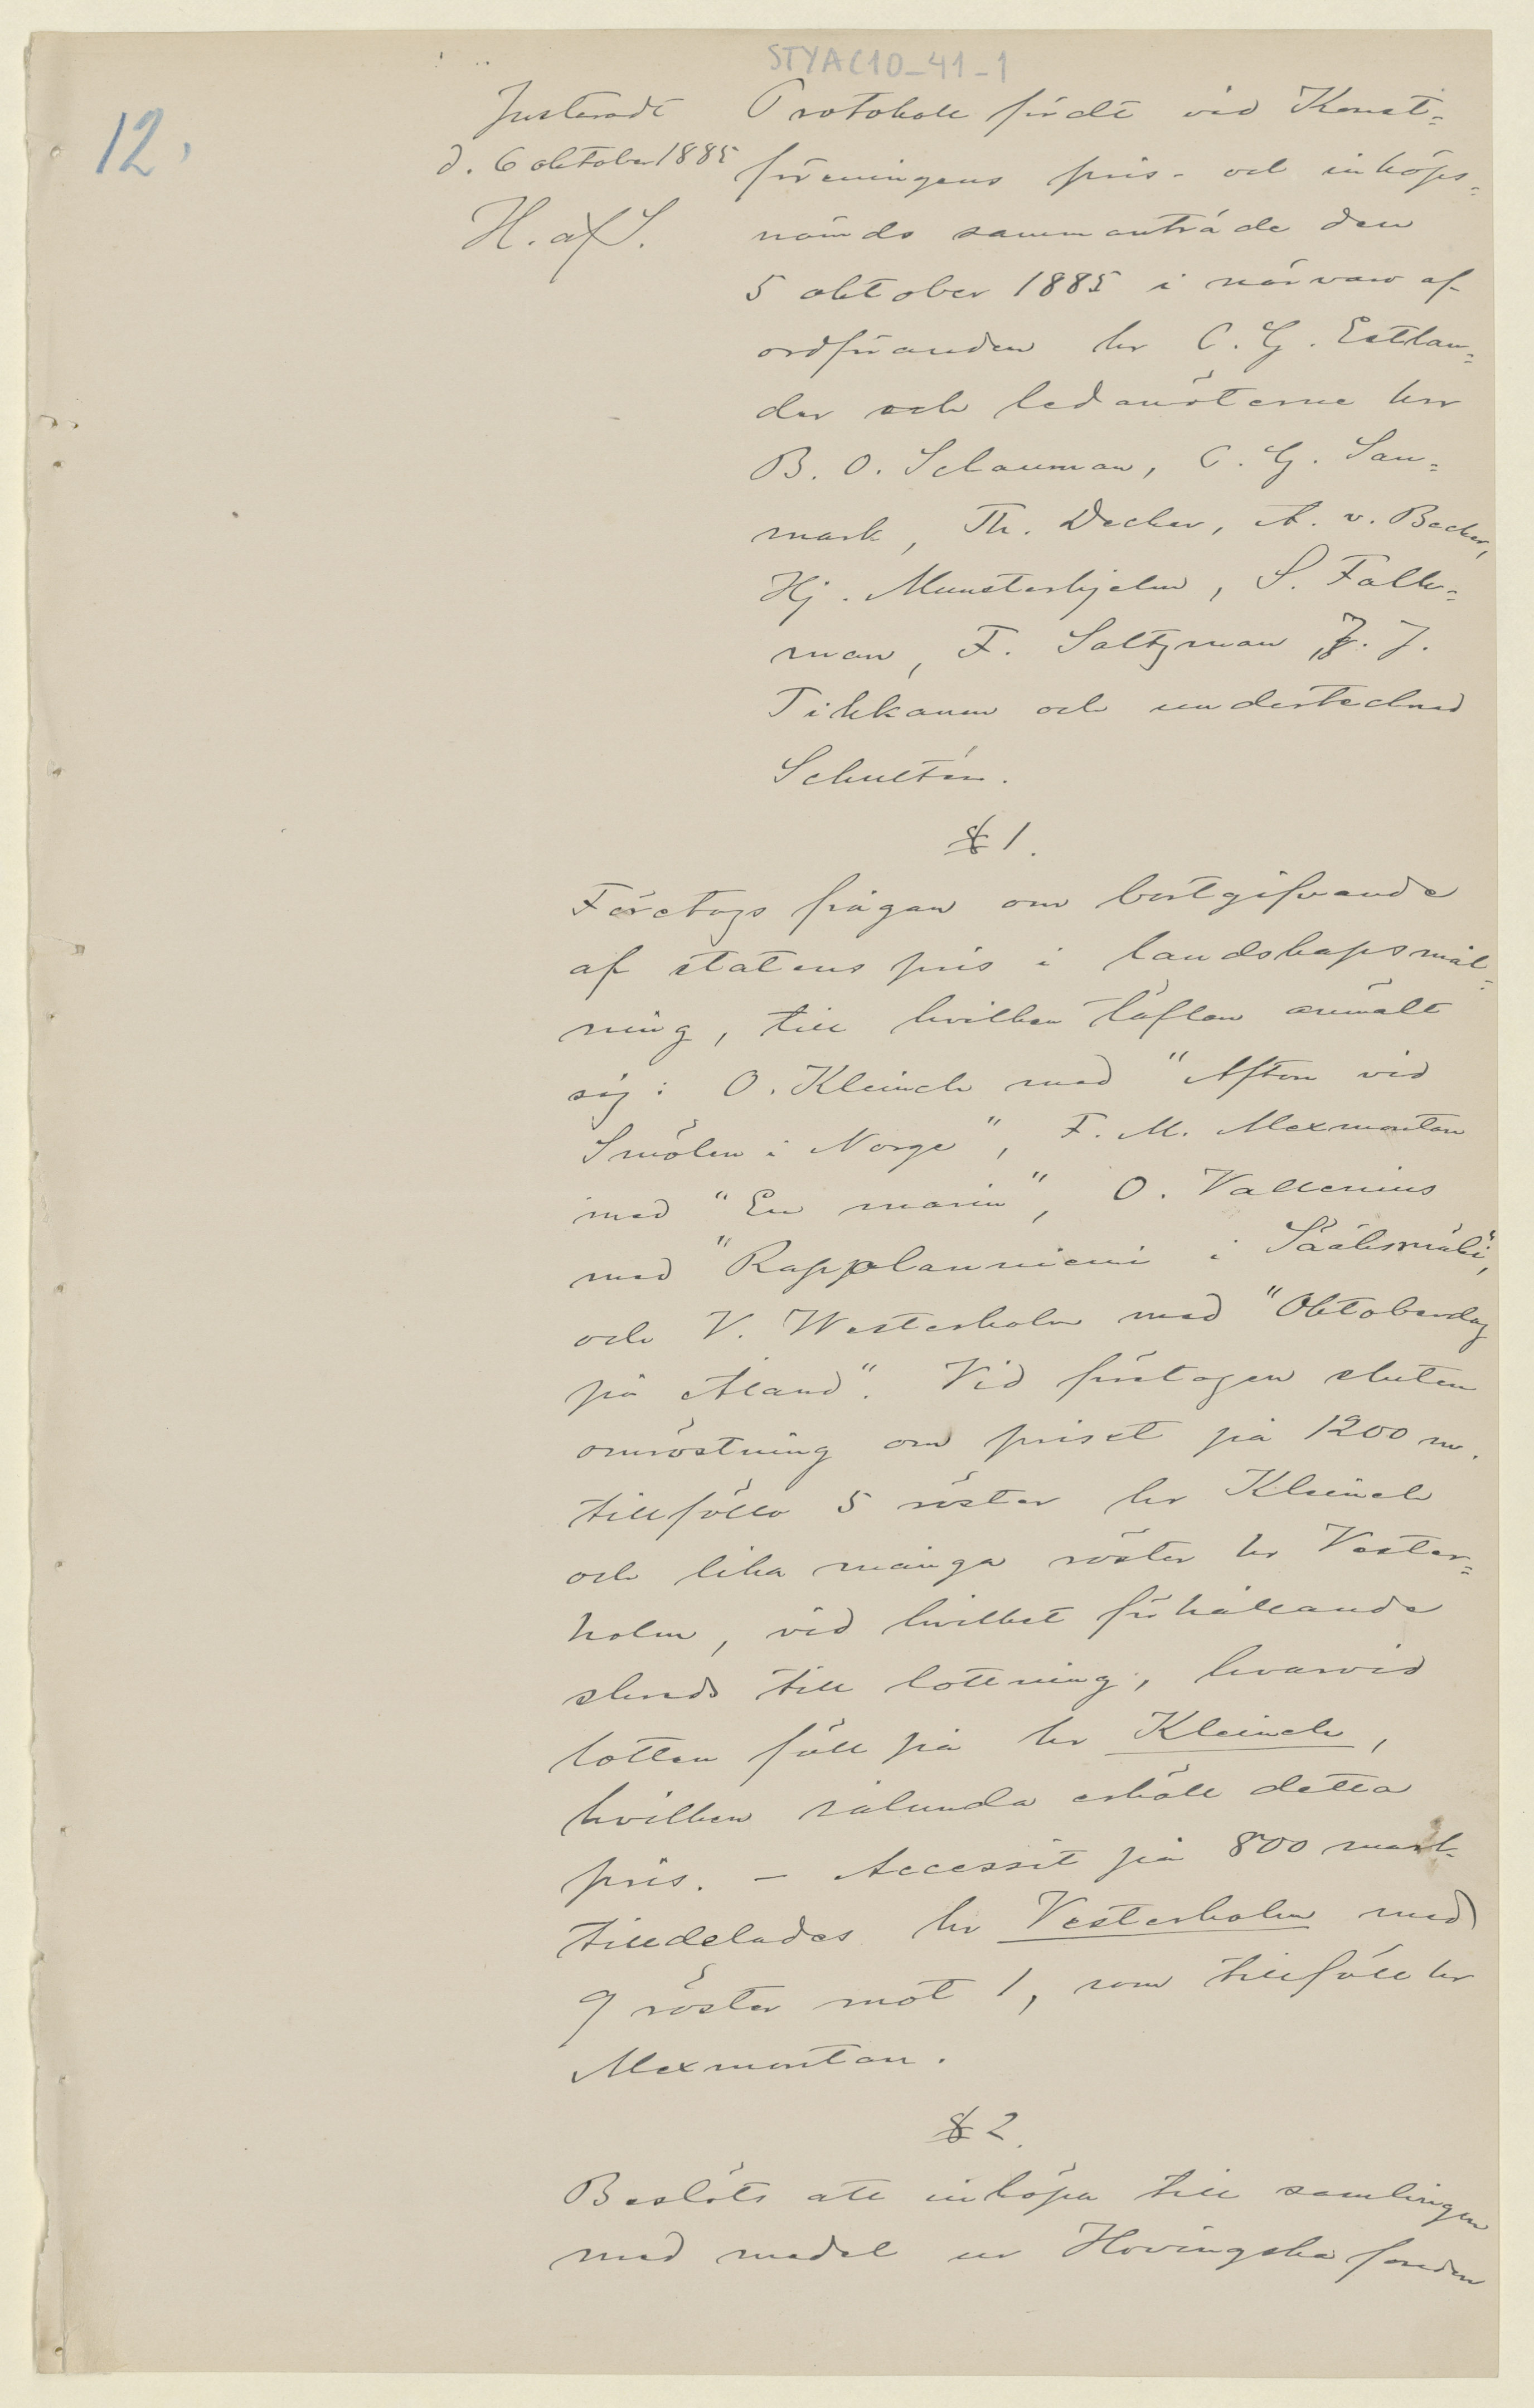 STYAC10_41_1
12.
Justeradt
d. 6 oktober 1885
H. af S.
Protokoll fördt vid Konst=
föreningens pris- och inköps=
nämds sammanträde den
5 oktober 1885 i närvaro af
ordföranden hr C. G. Estlan=
der och ledamöterne hrr
B. O. Schauman, C. G. San=
mark, Th. Decker, A. v. Becker,
Hj. Munsterhjelm, S. Falk=
man, F. Saltzman, J. J.
Tikkanen och undertecknad
Schultén.
§ 1.
Företogs frågan om bortgifvande
af statens pris i landskapsmål=
ning, till hvilken täflan anmält
sig: O. Kleineh med "Afton vid
Smölen i Norge", F. M. Mexmontan
med "En marin", O. Vallenius
med "Rapplanniemi i Sääksmäki",
och V. Westerholm med "Oktoberdag
på Åland". Vid företagen sluten
omröstning om priset på 1200 m.
tillföllo 5 röster hr Kleineh
och lika många röster hr Vester=
holm, vid hvilket förhållande
skreds till lottning, hvarvid
lotten föll på hr Kleineh,
hvilken sålunda erhöll detta
pris. – Accessit på 800 mark
tilldelades hr Vesterholm med
9 röster mot 1, som tillföll hr
Mexmontan.
§ 2.
Beslöts att inköpa till samlingen
med medel ur Hovingska fonden